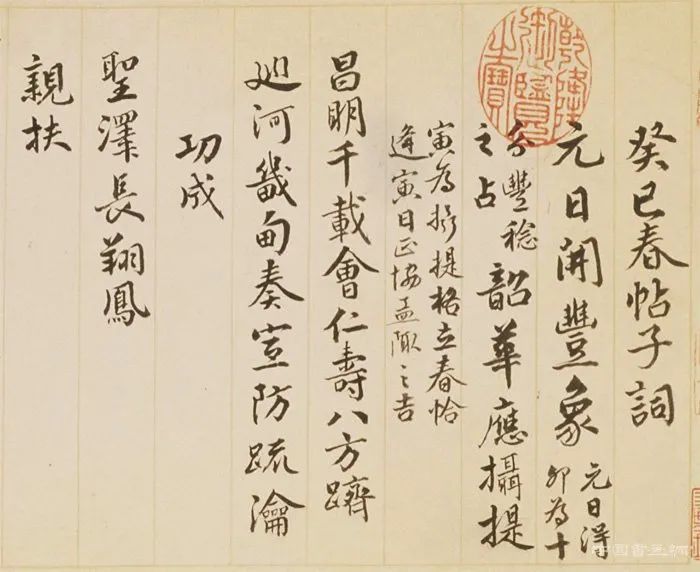 癸巳春帖子詞
元日開豐象
元日得
卯為十
分豐稔
之占
韶華應攝提
寅為攝提格立春恰
逢寅日正協孟陬之吉
昌明千載會仁壽八方躋
巡河畿甸奏宣防疏瀹
功成
聖澤長翔鳳
親扶
乾隆御覽之寶